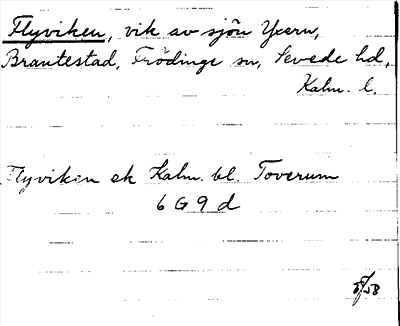 Flyviken, vik av sjön Yxern,
Brantestad, Frödinge sn, Sevede hd,
Kalm. l.
Flyviken ek Kalm. bl. Toverum
6 G 9 d
5/58